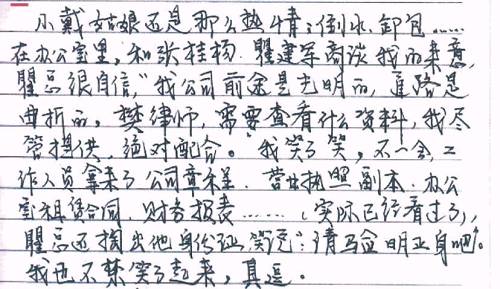 小戴姑娘还是那么热情；倒水、卸包……
在办公室里，和张桂杨、瞿建军商谈我的来意，
瞿总很自信，“我公司前途是光明的，道路是
曲折的。樊律师，需要查看什么资料，我尽
管提供，绝对配合。”我笑了笑，不一会，工
作人员拿来了公司章程、营业执照副本、办公
室租赁合同、财务报表……（实际已经看过了），
瞿总还掏出他身份证，笑说：“请验明正身吧。”
我也不禁笑了起来，真逗。